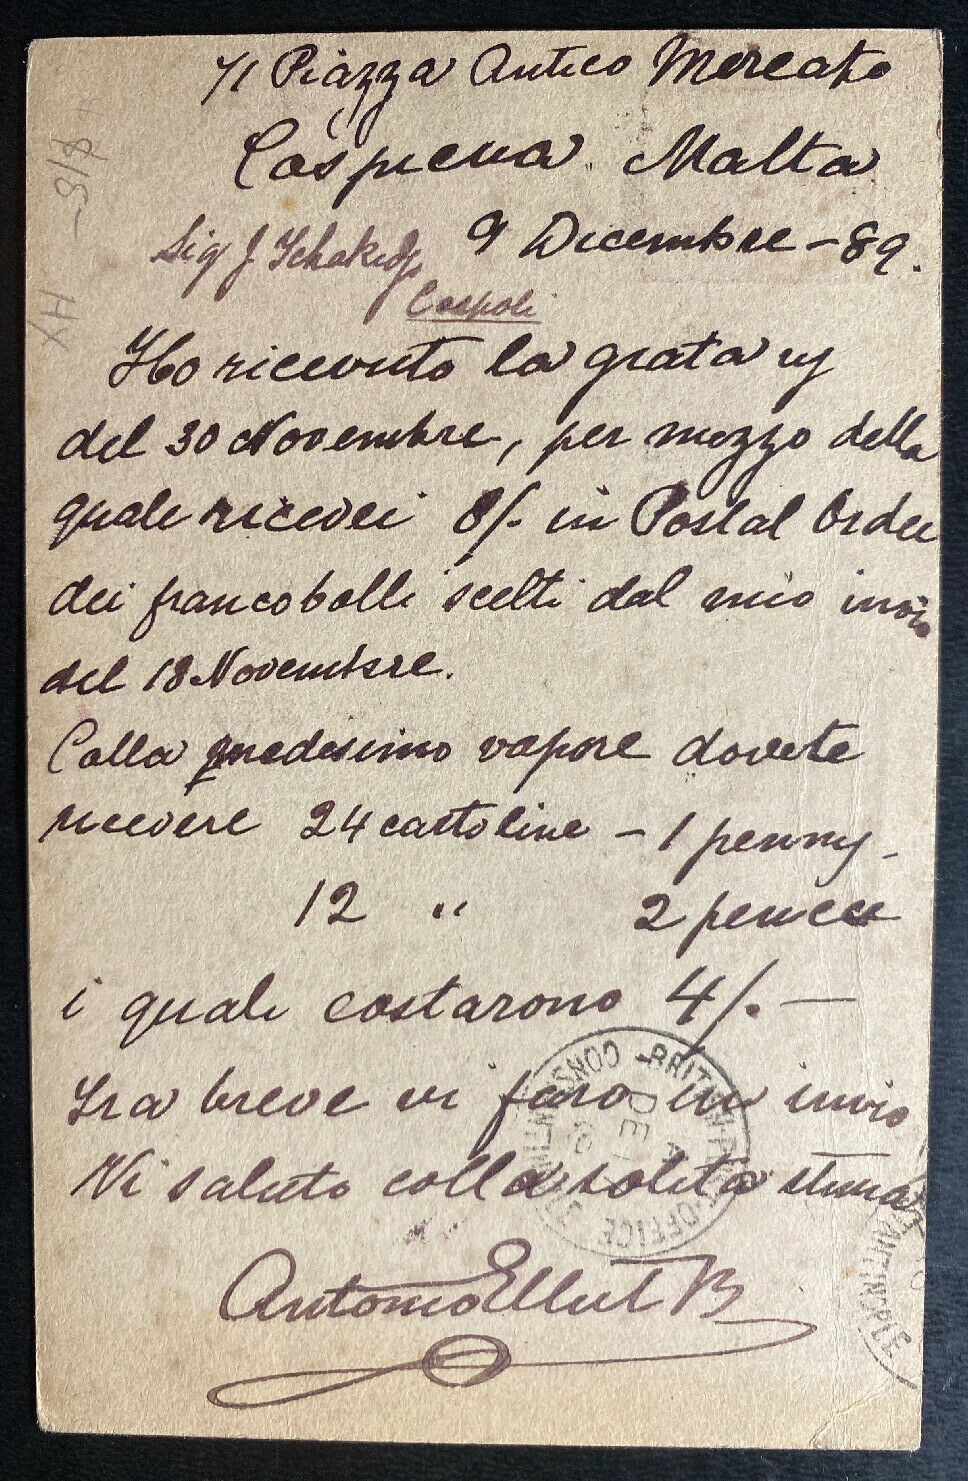 71 Piazza Antico Mercato
Cospicua Malta
9 Dicembre - 89.
Sig J
Cospoli
Ho ricevuto la grata
del 30 Novembre, per mezzo della
quale ricevei 8/- in Postal Order
dei francobolli scelti dal mio invio
del 18 Novembre.
Colla medesimo vapore dovete
ricevere 24 cartoline - 1 penny -
12 " 2 pence
i quali costarono 4/. —
Fra breve vi farò un invio
Vi saluto colla solita stima
Antonio Ellul B
BRITISH-POST-OFFICE CONSTANTINOPLE
DE
A